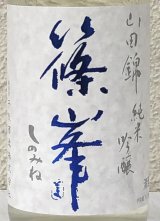 山田錦
純米
吟醸
篠峯
しのみね